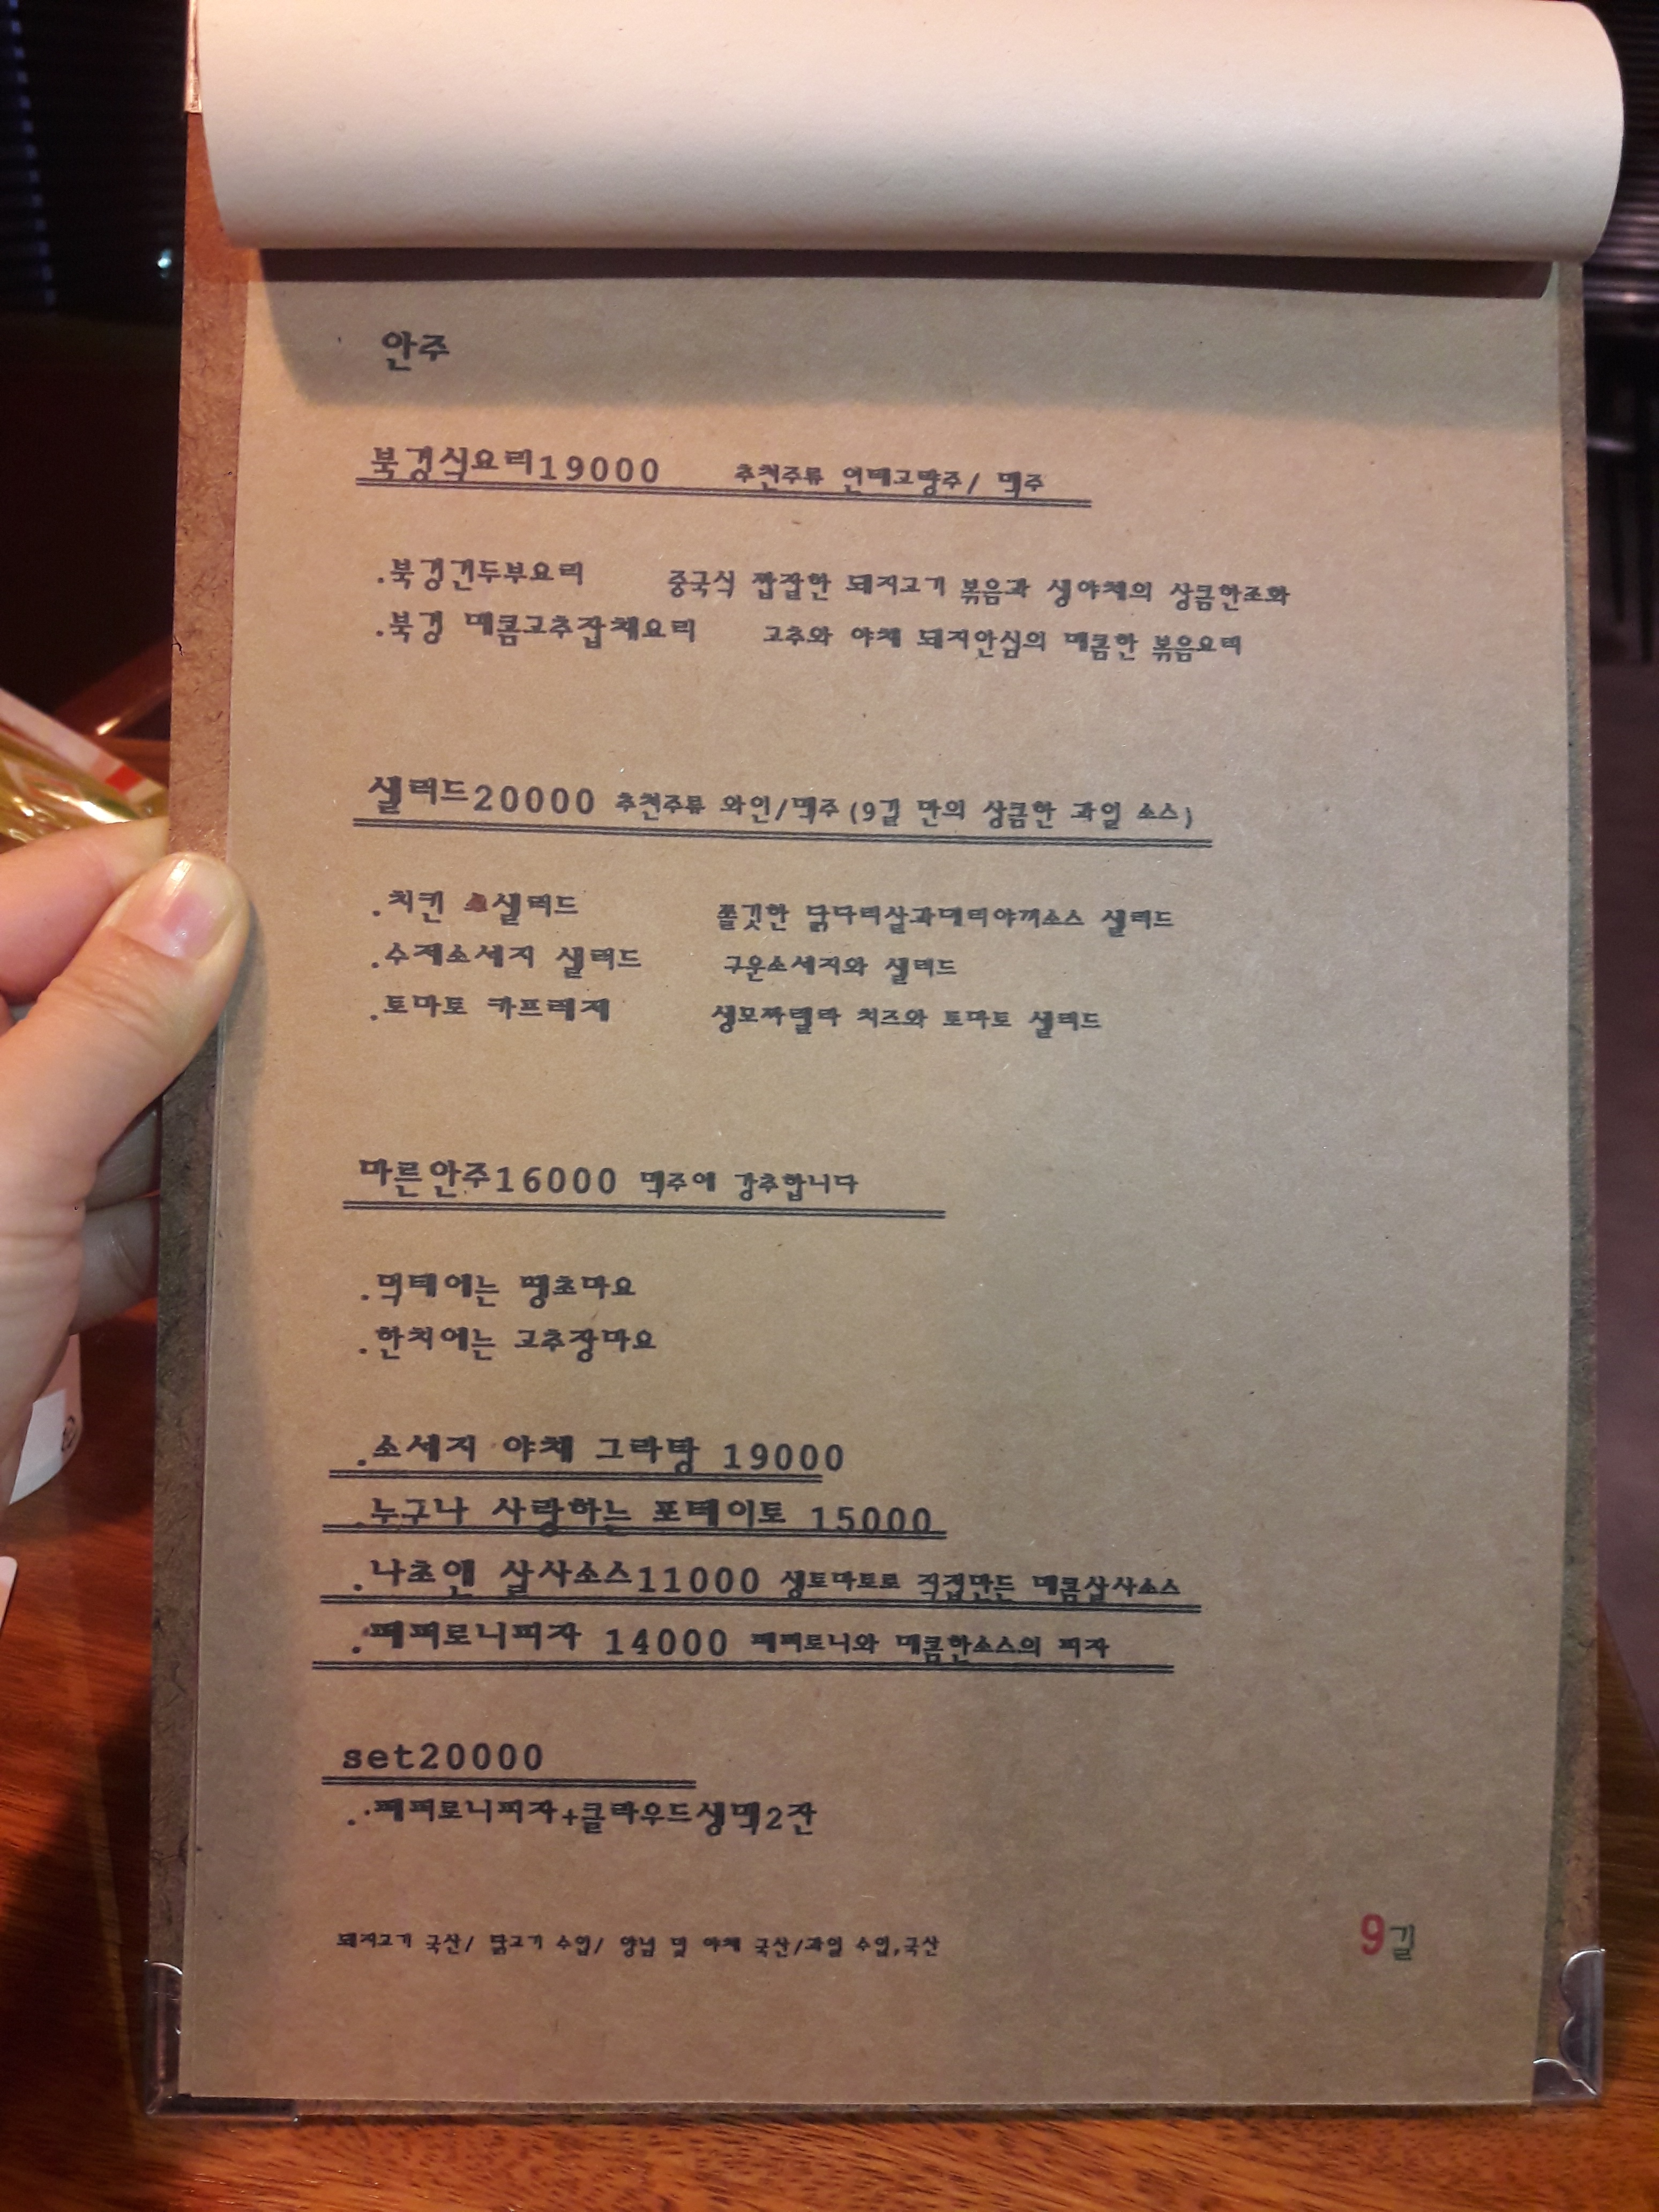 안주
북경식요리19000 추천주류 연태고량주/ 맥주
.북경건두부요리 중국식 짭잘한 돼지고기 볶음과 생야채의 상콤한조화
.북경 매콤고추잡채요리 고추와 야채 돼지안심의 매콤한 볶음요리
샐러드20000 추천주류 와인/맥주(9길 만의 상콤한 과일 소스)
.치킨 샐러드 쫄깃한 닭다리살과데리야끼소스 샐러드
.수제소세지 샐러드 구운소세지와 샐러드
.토마토 카프레제 생모짜렐라 치즈와 토마토 샐러드
마른안주16000 맥주에 강추합니다
.먹태에는 땡초마요
.한치에는 고추장마요
.소세지 야채 그라탕 19000
.누구나 사랑하는 포테이토 15000
.나초앤 살사소스11000 생토마토로 직접만든 매콤살사소스
.페퍼로니피자 14000 페퍼로니와 매콤한소스의 피자
set20000
.페퍼로니피자+클라우드생맥2잔
돼지고기 국산/ 닭고기 수입/ 양념 및 야채 국산/과일 수입,국산
9길